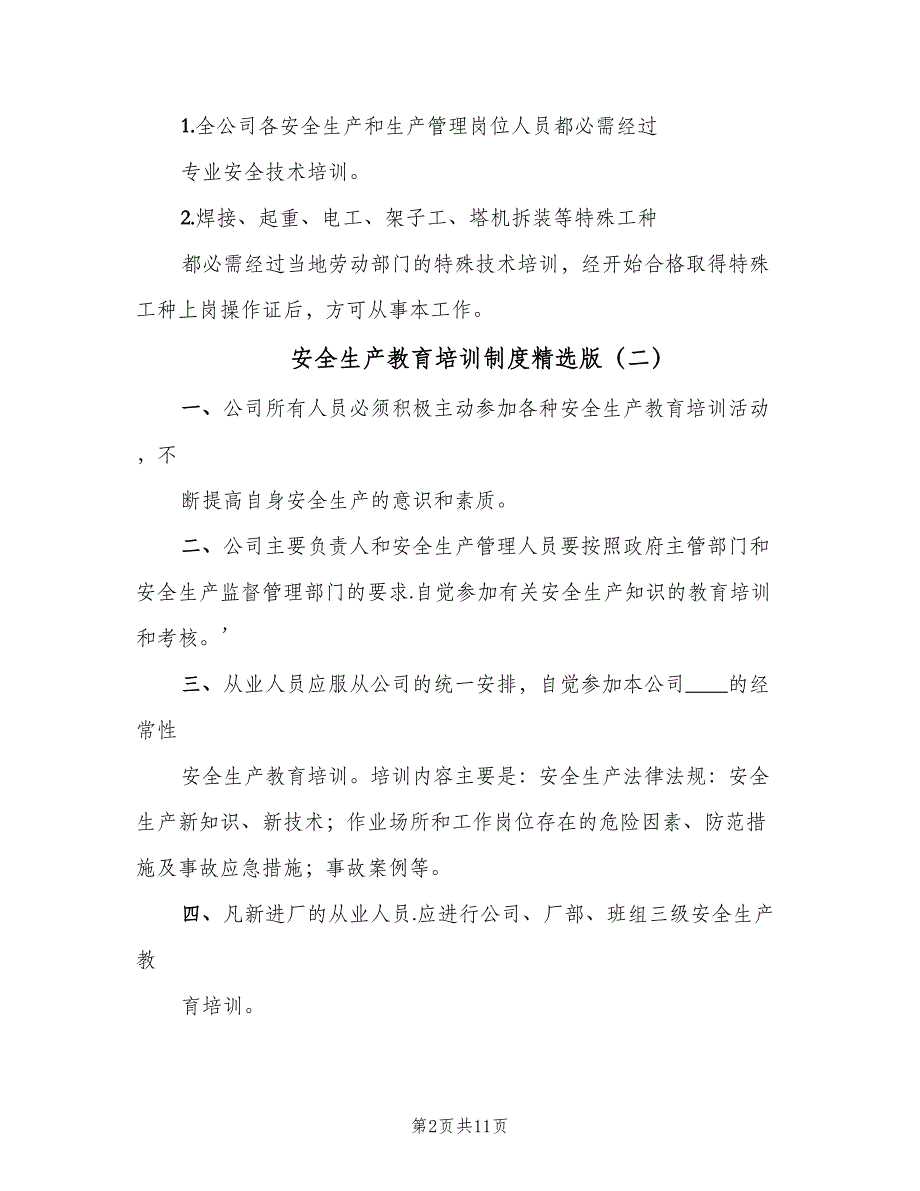 1.全公司各安全生产和生产管理岗位人员都必需经过
专业安全技术培训。
2.焊接、起重、电工、架子工、塔机拆装等特殊工种
都必需经过当地劳动部门的特殊技术培训，经开始合格取得特殊
工种上岗操作证后，方可从事本工作。
安全生产教育培训制度精选版（二）
一、公司所有人员必须积极主动参加各种安全生产教育培训活动
，不
断提高自身安全生产的意识和素质。
二、公司主要负责人和安全生产管理人员要按照政府主管部门和
安全生产监督管理部门的要求.自觉参加有关安全生产知识的教育培训
和考核。'
三、从业人员应服从公司的统一安排，自觉参加本公司____的经
常性
安全生产教育培训。培训内容主要是：安全生产法律法规：安全
生产新知识、新技术；作业场所和工作岗位存在的危险因素、防范措
施及事故应急措施；事故案例等。
四、凡新进厂的从业人员.应进行公司、厂部、班组三级安全生产
教
育培训。
第2页共11页